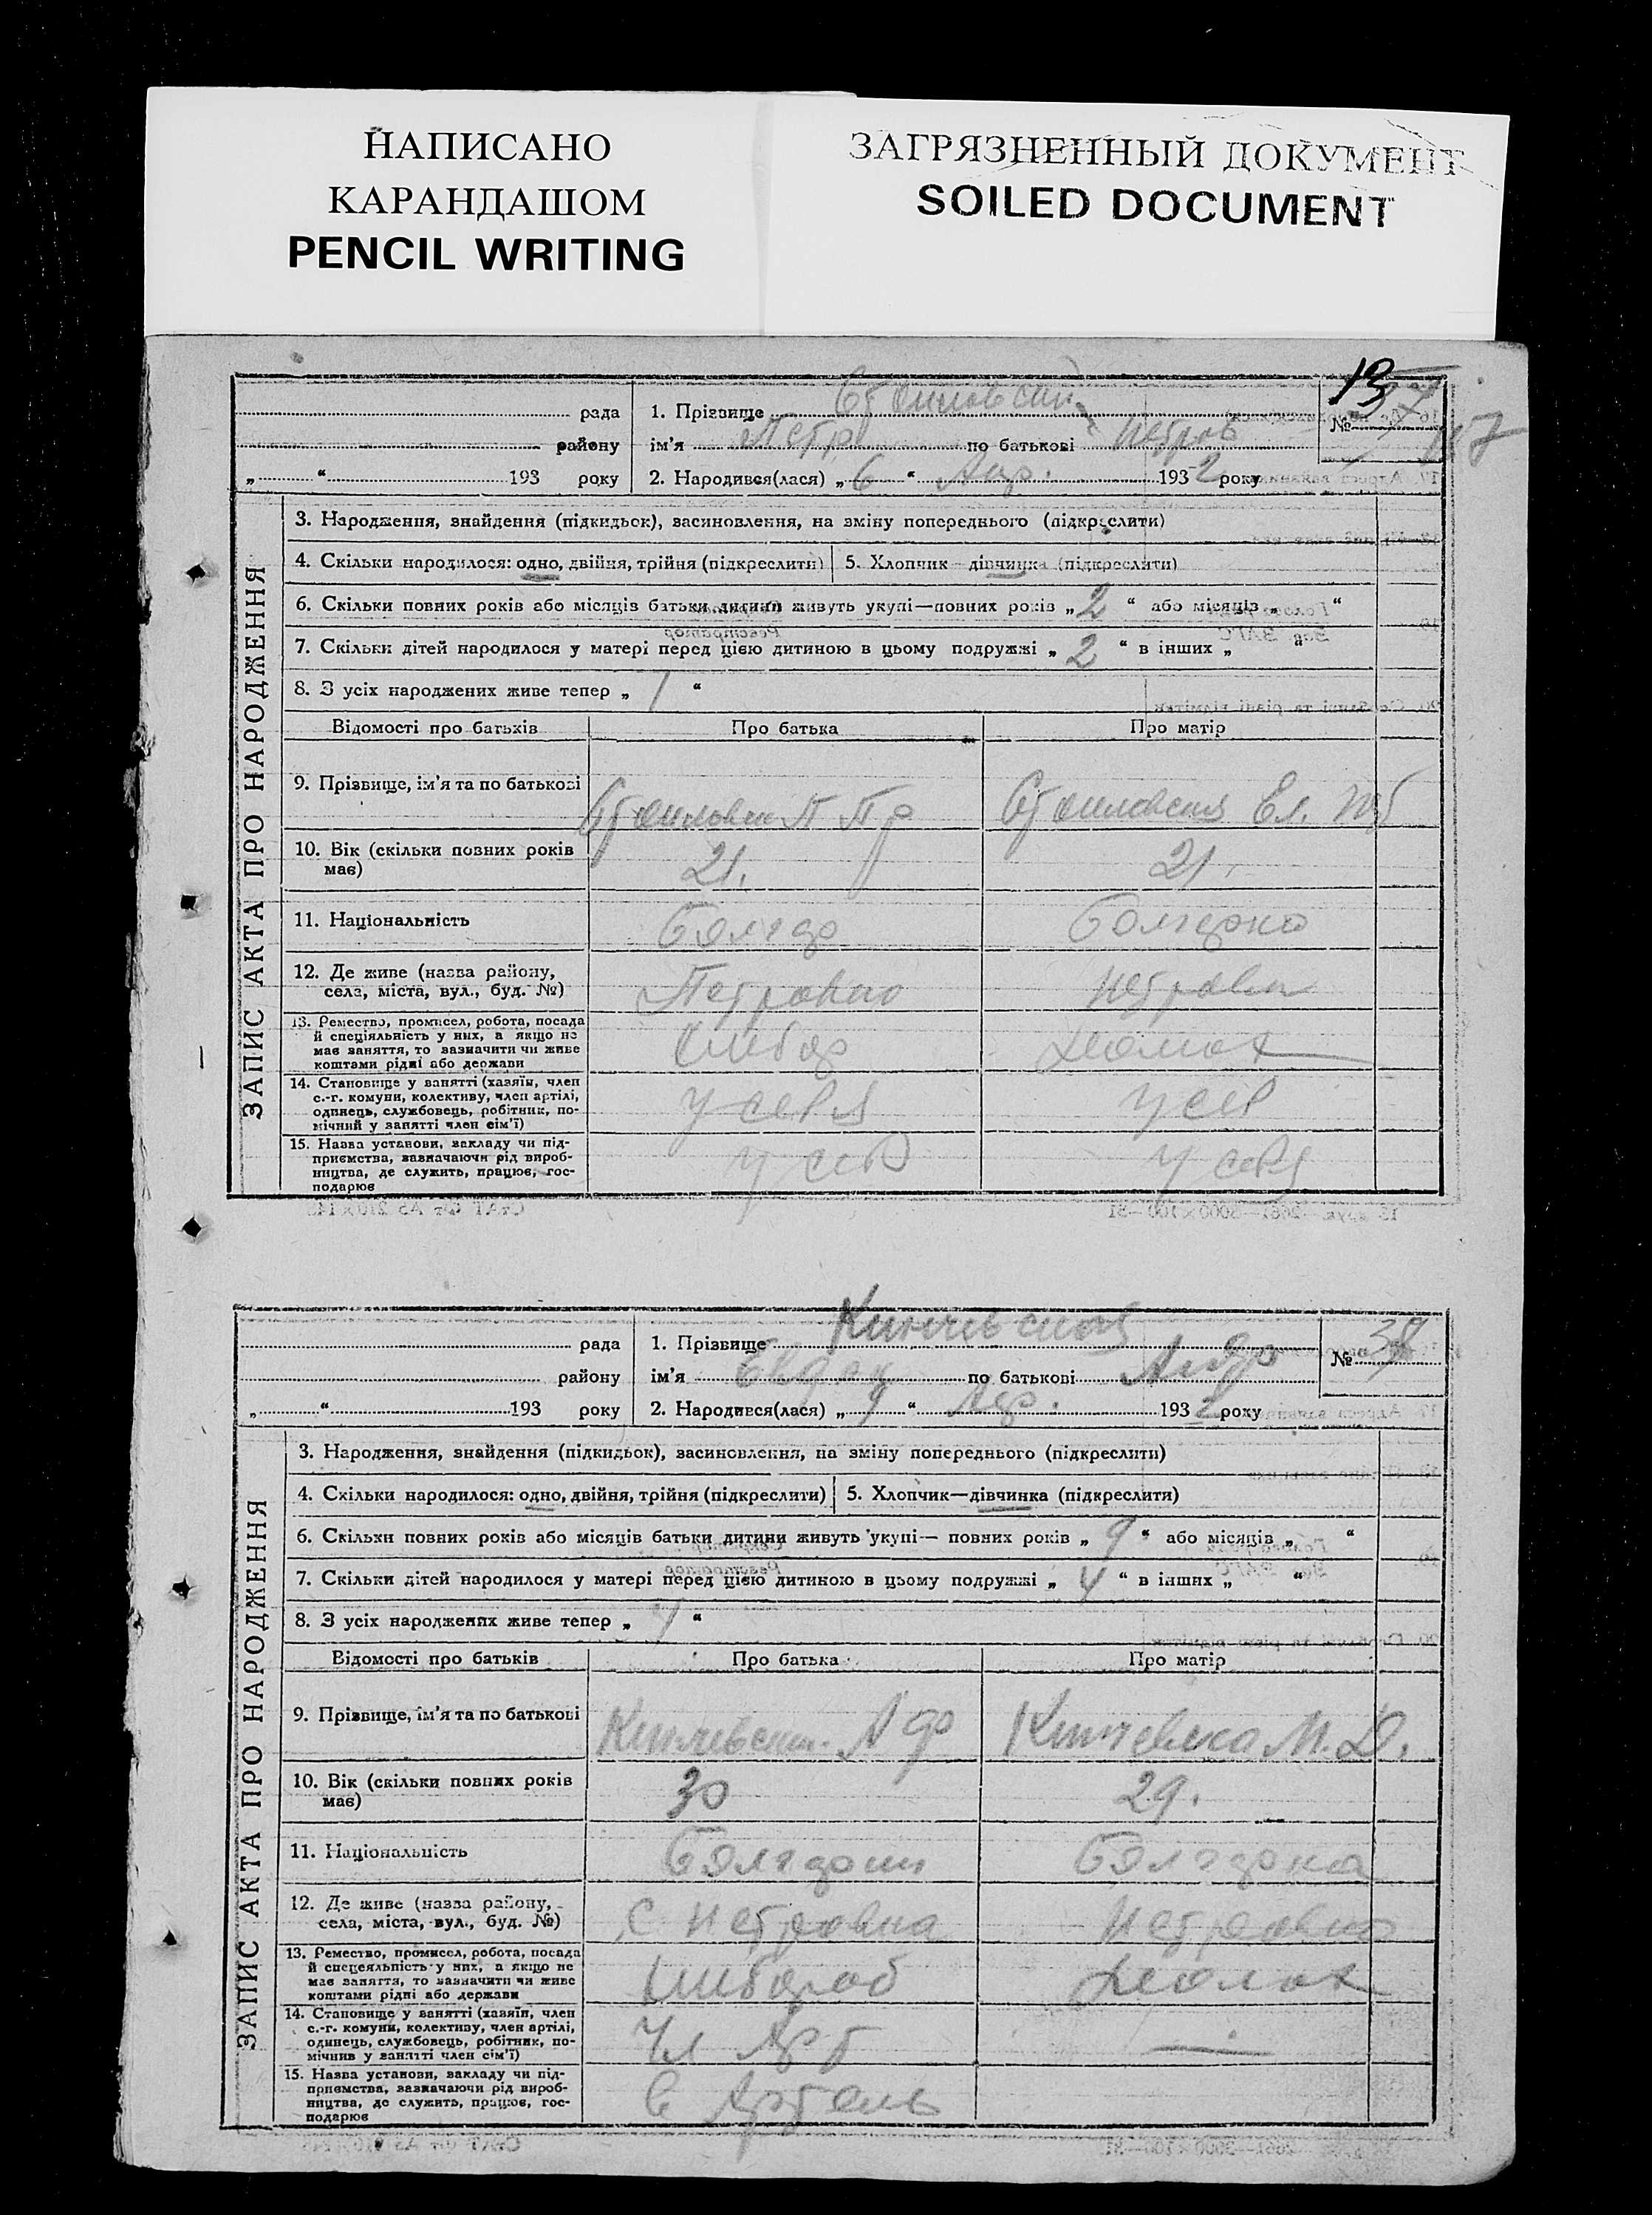 НАПИСАНО
КАРАНДАШОМ
PENCIL WRITING
ЗАГРЯЗНЕННЫЙ ДОКУМЕНТ
SOILED DOCUMENT
13
ЗАПИС АКТА ПРО НАРОДЖЕННЯ
рада
району
„ “ 193 року
1. Прізвище
ім'я Петр по батькові Петров
2. Народився(лася) „ 6 “ Апр. 1932 року
№ 37
3. Народження, знайдення (підкидьок), засиновлення, на зміну попереднього (підкреслити)
4. Скільки народилося: одно, двійня, трійня (підкреслити)
5. Хлопчик—дівчинка (підкреслити)
6. Скільки повних років або місяців батьки дитини живуть укупі—повних років „ 2 “ або місяців „ “
7. Скільки дітей народилося у матері перед цією дитиною в цьому подружжі „ 2 “ в інших „ “
8. З усіх народжених живе тепер „ 1 “
Відомості про батьків
Про батька
Про матір
9. Прізвище, ім'я та по батькові
10. Вік (скільки повних років має)
21.
21.
11. Національність
Болгар
Болгарка
12. Де живе (назва району, села, міста, вул., буд. №)
Петровка
Петровка
13. Ремество, промисел, робота, посада
й спеціяльність у них, а якщо не
має заняття, то зазначити чи живе
коштами рідні або держави
Хлебор
домох
14. Становище у занятті (хазяїн, член
с.-г. комуни, колективу, член артілі,
одинець, службовець, робітник, по-
мічний у занятті член сім'ї)
у себя
у себ
15. Назва установи, закладу чи під-
приємства, зазначаючи рід вироб-
ництва, де служить, працює, гос-
подарює
у себ
у себя
ЗАПИС АКТА ПРО НАРОДЖЕННЯ
рада
району
„ “ 193 року
1. Прізвище
ім'я Евдок по батькові
2. Народився(лася) „ 9 “ Апр. 1932 року
№ 38
3. Народження, знайдення (підкидьок), засиновлення, на зміну попереднього (підкреслити)
4. Скільки народилося: одно, двійня, трійня (підкреслити)
5. Хлопчик—дівчинка (підкреслити)
6. Скільки повних років або місяців батьки дитини живуть укупі— повних років „ 9 “ або місяців „ “
7. Скільки дітей народилося у матері перед цією дитиною в цьому подружжі „ 4 “ в інших „ “
8. З усіх народжених живе тепер „ 4 “
Відомості про батьків
Про батька
Про матір
9. Прізвище, ім'я та по батькові
М. Д.
10. Вік (скільки повних років має)
30
29.
11. Національність
Болгарин
Болгарка
12. Де живе (назва району, села, міста, вул., буд. №)
С Петровка
Петровка
13. Ремество, промисел, робота, посада
й спецеяльність у них, а якщо не
має заняття, то зазначити чи живе
коштами рідні або держави
Хлебороб
домох
14. Становище у занятті (хазяїн, член
с.-г. комуни, колективу, член артілі,
одинець, службовець, робітник, по-
мічнив у занятті член сім'ї)
Чл Арт
15. Назва установи, закладу чи під-
приємства, зазначаючи рід вироб-
ництва, де служить, працює, гос-
подарює
в Артель